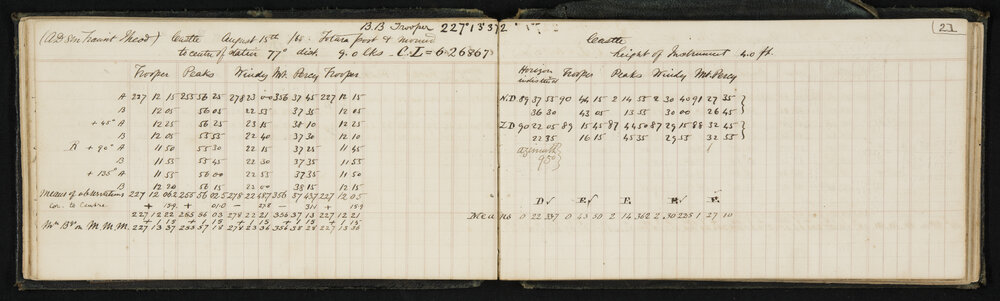 B.B Trooper 227°13'37
(A.D. Son Transit Theod) Castle August 15th /60. Totara post & mound
to centre of latter 77° dist 9.0 lks C.L = 6.26867
Trooper Peaks Windy Mt. Percy Trooper
A 227 12 15 255 56 25 278 23 00 356 37 45 227 12 15
B 12 05 56 05 22 55 37 35 12 05
+ 45° A 12 25 56 25 23 15 38 10 12 25
B 12 05 55 55 22 40 37 30 12 10
R + 90° A 11 50 55 30 22 15 37 25 11 45
B 11 55 55 45 22 30 37 35 11 55
+ 135° A 11 55 56 00 22 55 37 35 11 50
B 12 20 56 15 22 00 38 15 12 15
Means of observations 227 12 06.2 255 56 02.5 278 22 48.7 356 37 43.7 227 12 05
Cor. to Centre
227 12 22 255 56 03 278 22 21 356 37 13 227 12 21
+ 1 15 + 1 15 + 1 15 + 1 15 + 1 15
Mn Bs on M.M.M. 227 13 37 255 57 18 278 23 36 356 38 28 227 13 36
21
Castle
height of Instrument 4.0 ft.
Horizon indistinct Trooper Peaks Windy Mt Percy
N.D 89 37 55 90 44 15 2 14 55 2 30 40 91 27 35
36 30 43 05 13 55 30 00 26 45
Z.D 90 22 05 89 15 45 87 44 50 87 29 15 88 32 45
22 35 16 15 45 35 29 55 32 55
azimuth 95°
D. E. E. E. D.
Means 0 22 0 43 30 2 14 2 30 1 27 10